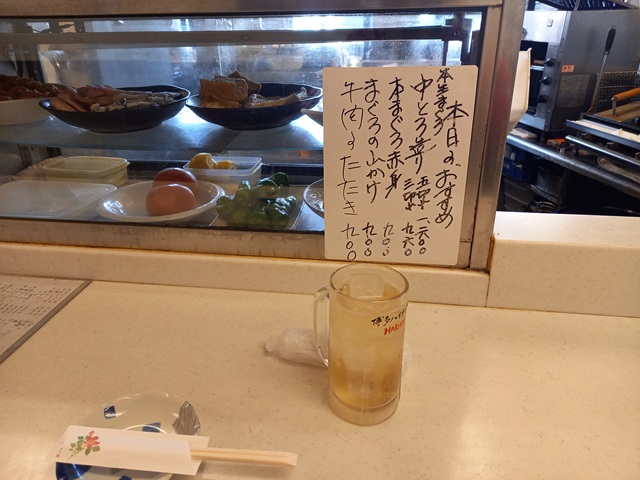 本日のおすすめ
本生まぐろ
中とろ造り 五切 一六〇〇
三切 九六〇
本まぐろ赤身 九〇〇
まぐろの山かけ 九〇〇
牛肉のたたき 九〇〇
博多ハイボール